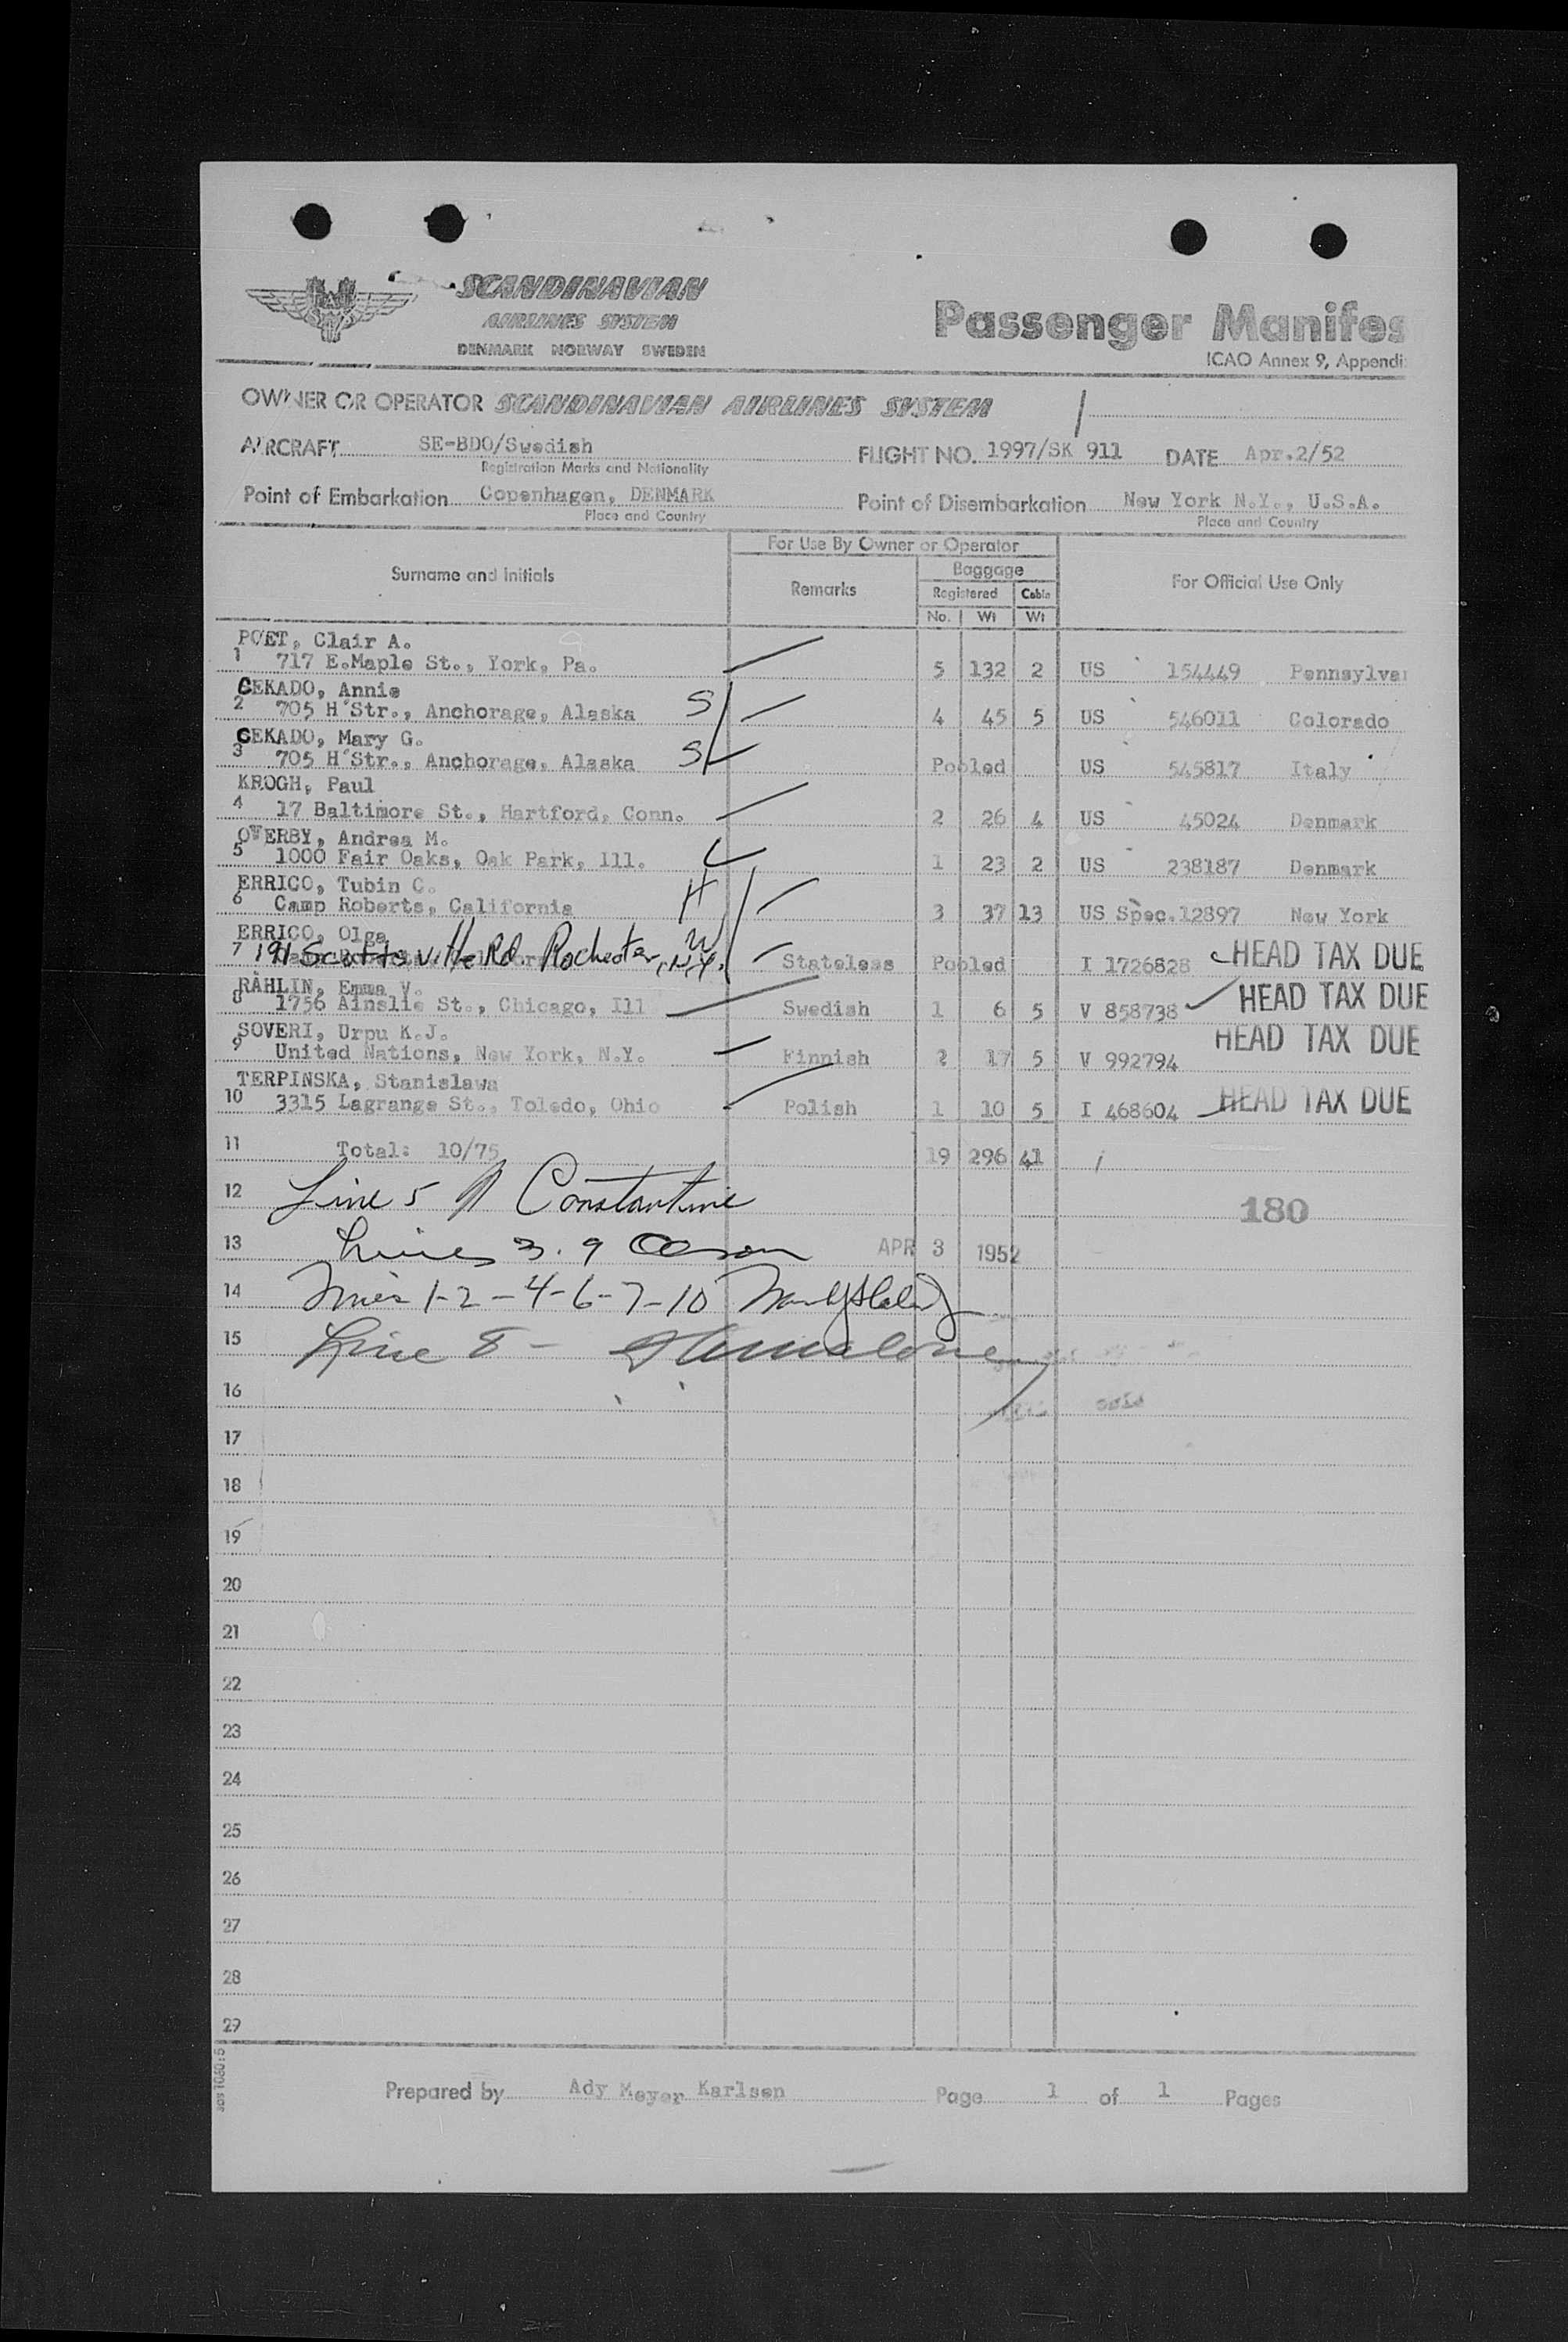 SCANDINAVIAN
AIRLINES SYSTEM
DENMARK NORWAY SWEDEN
Passenger Manifes
ICAO Annex 9, Appendi
OWNER OR OPERATOR SCANDINAVIAN AIRLINES SYSTEM
AIRCRAFT SE-BDO/Swedish FLIGHT NO. 1997/SK 911 DATE Apr.2/52
Registration Marks and Nationality
Point of Embarkation Copenhagen, DENMARK Point of Disembarkation New York N.Y., U.S.A.
Place and Country Place and Country
For Use By Owner or Operator
Surname and Initials Remarks Baggage For Official Use Only
Registered Cabin
No. Wt Wt
POET, Clair A.
1 717 E.Maple St., York, Pa. 5 132 2 US 154449 Pennsylva
CEKADO, Annie
2 705 H Str., Anchorage, Alaska S 4 45 5 US 546011 Colorado
CEKADO, Mary G.
3 705 H Str., Anchorage, Alaska S Pooled US 545817 Italy
KROGH, Paul
4 17 Baltimore St., Hartford, Conn. 2 26 4 US 45024 Denmark
OVERBY, Andrea M.
5 1000 Fair Oaks, Oak Park, Ill. 1 23 2 US 238187 Denmark
ERRICO, Tubin C. H
6 Camp Roberts, California 3 37 13 US Spec.12897 New York
ERRICO, Olga W
7 191 Scottsville Rd Rochester, N.Y. Stateless Pooled I 1726828 HEAD TAX DUE
RÅHLIN, Emma V.
8 1756 Ainslie St., Chicago, Ill Swedish 1 6 5 V 858738 HEAD TAX DUE
SOVERI, Urpu K.J.
9 United Nations, New York, N.Y. Finnish 2 17 5 V 992794 HEAD TAX DUE
TERPINSKA, Stanislawa
10 3315 Lagrange St., Toledo, Ohio Polish 1 10 5 I 468604 HEAD TAX DUE
11 Total: 10/75 19 296 41
12 Line 5 Constantine 180
13 Lines 3. 9 APR 3 1952
14 Lines 1-2-4-6-7-10
15 Line 8 -
16
17
18
19
20
21
22
23
24
25
26
27
28
29
Prepared by Ady Meyer Karlsen Page 1 of 1 Pages